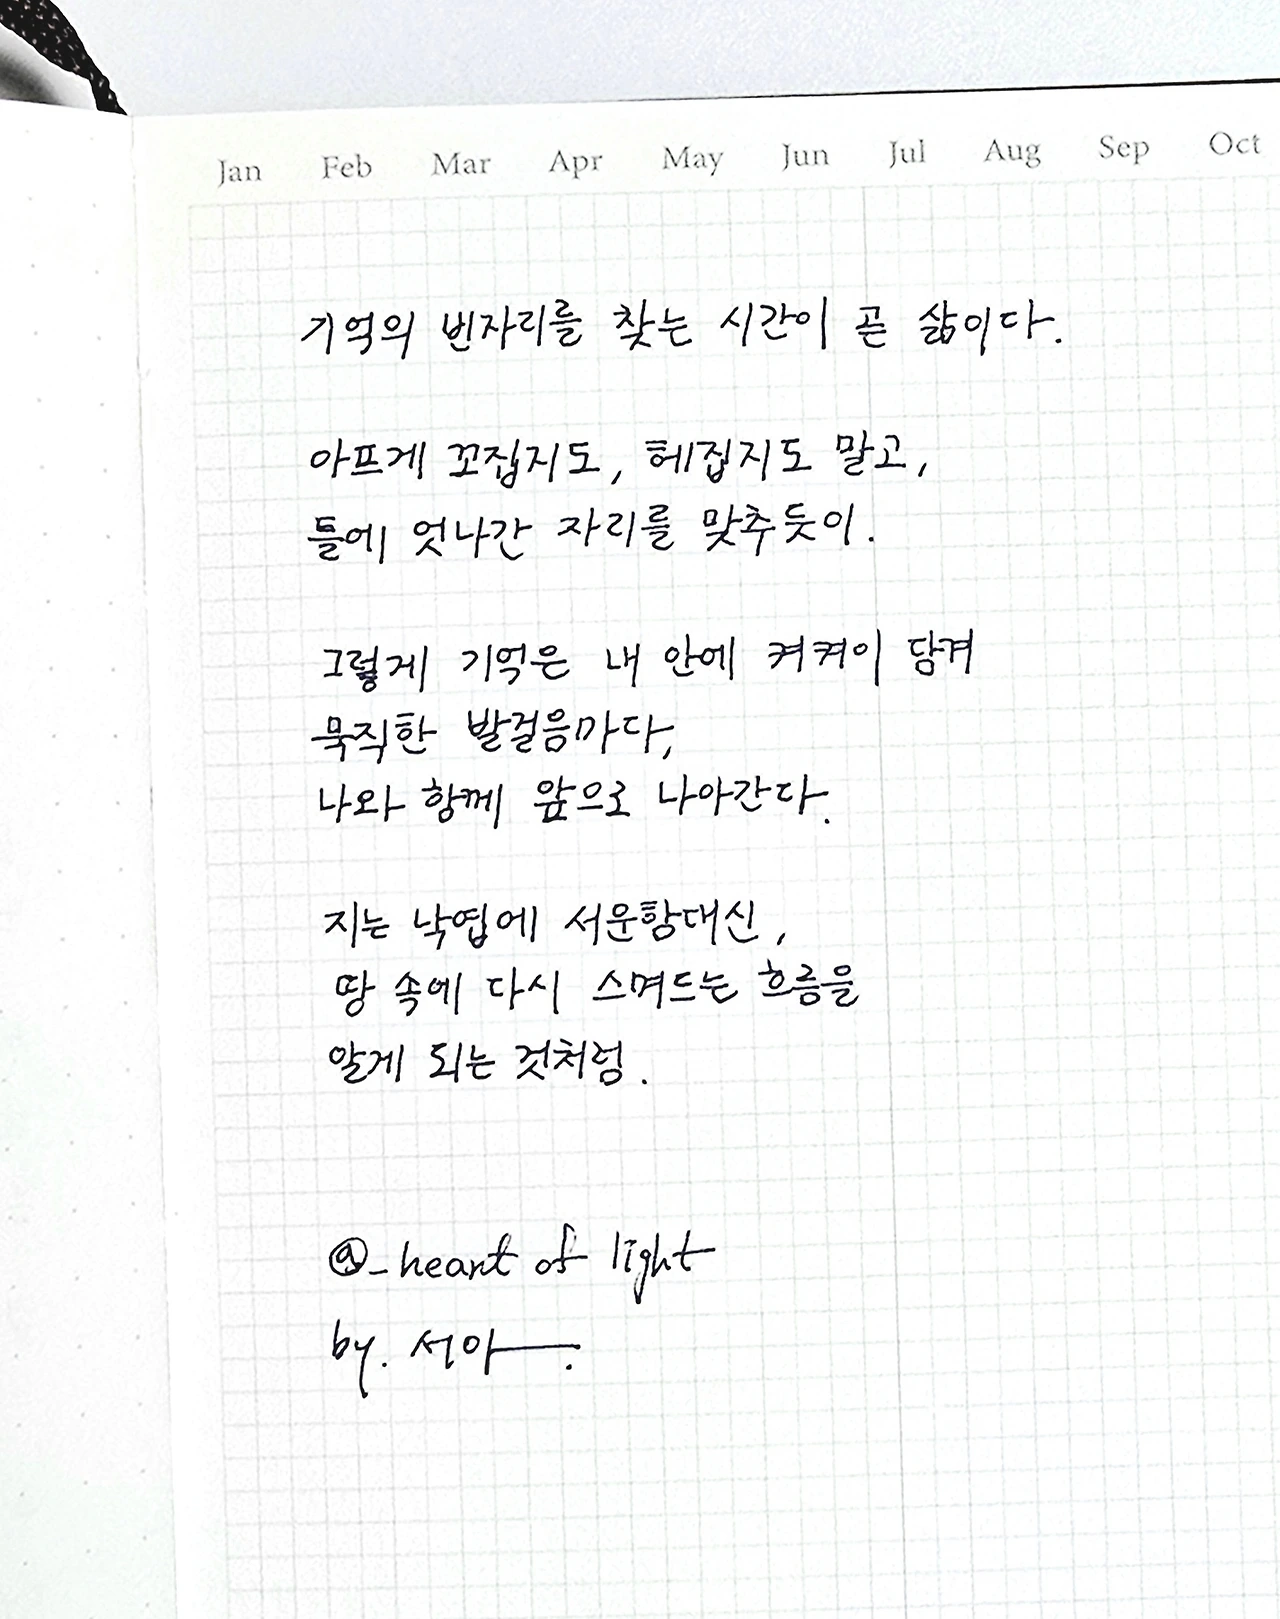 Jan Feb Mar Apr May Jun Jul Aug Sep Oct
기억의 빈자리를 찾는 시간이 곧 삶이다.
아프게 꼬집지도, 헤집지도 말고,
틀에 엇나간 자리를 맞추듯이.
그렇게 기억은 내 안에 켜켜이 담겨
묵직한 발걸음마다,
나와 함께 앞으로 나아간다.
지는 낙엽에 서운함대신,
땅 속에 다시 스며드는 흐름을
알게 되는 것처럼.
@_heart of light
by. 서아.